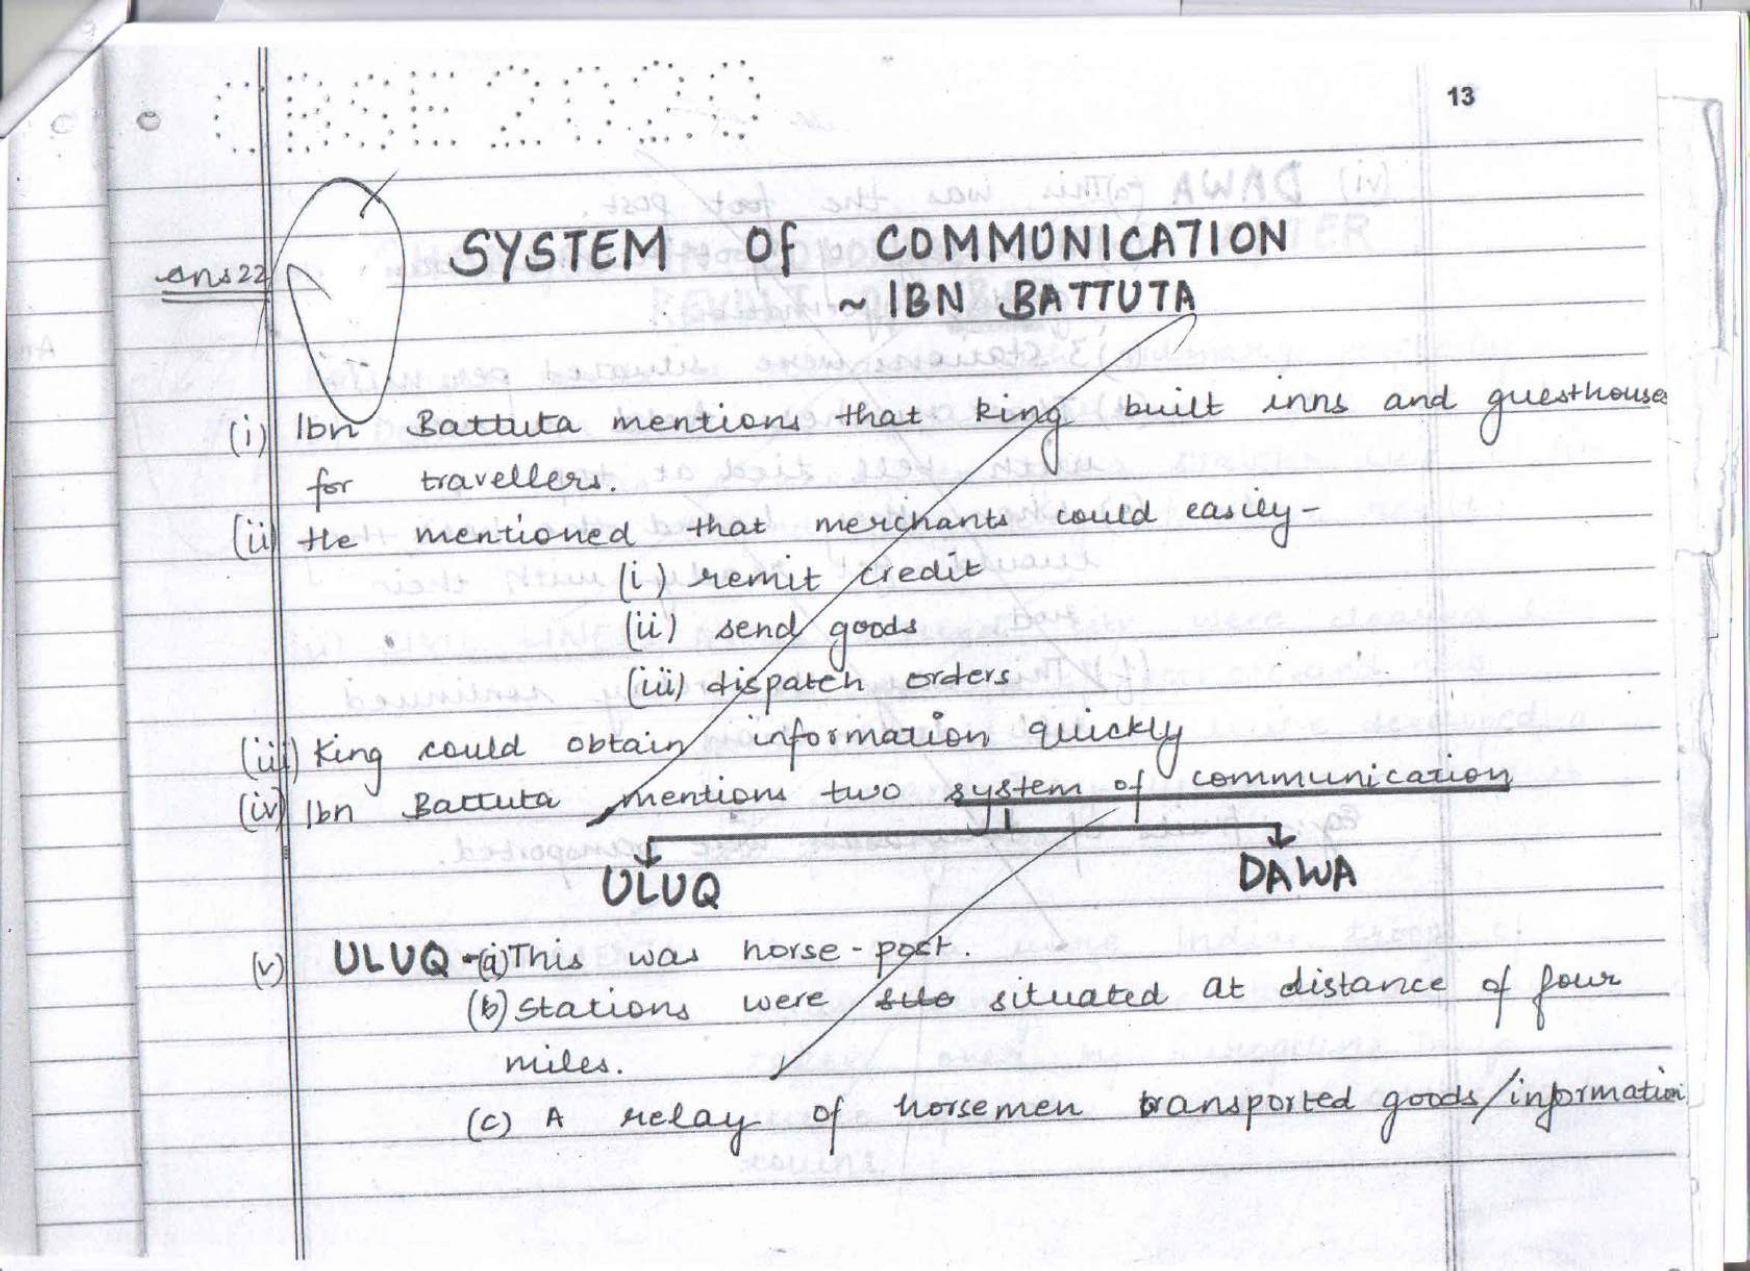 CBSE 2020
13
Ans 22
SYSTEM Of COMMUNICATION
~ IBN BATTUTA
(i) Ibn Battuta mentions that king built inns and guesthouse
for travellers.
(ii) He mentioned that merchants could easily-
(i) remit credit
(ii) send goods
(iii) dispatch orders
(iii) King could obtain information quickly
(iv) Ibn Battuta mentions two system of communication
ULUQ DAWA
(v) ULUQ - (a) This was horse-post.
(b) Stations were situated at distance of four
miles.
(c) A relay of horsemen transported goods/information